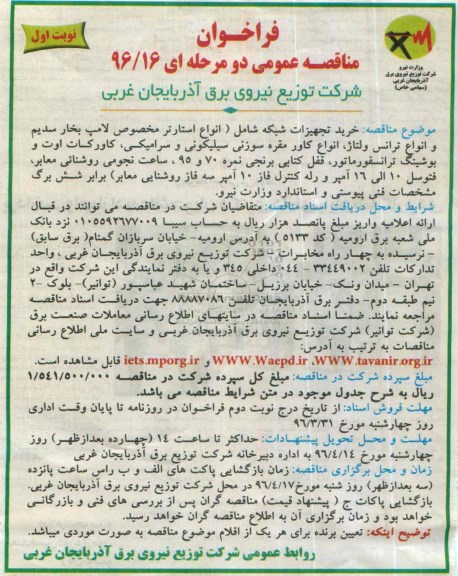 نوبت اول
فراخـوان
مناقصه عمومی دو مرحله ای ۹۶/۱۶
شرکت توزیع نیروی برق آذربایجان غربی
وزارت نیرو
شرکت توزیع نیروی برق
آذربایجان غربی
(سهامی خاص)
موضوع مناقصه: خرید تجهیزات شبکه شامل ( انواع استارتر مخصوص لامپ بخار سدیم
و انواع ترانس ولتاژ، انواع کاور مقره سوزنی سیلیکونی و سرامیکی، کاورکات اوت و
بوشینگ ترانسفورماتور، قفل کتابی برنجی نمره ۷۰ و ۹۵ ، ساعت نجومی روشنائی معابر،
فتوسل ۱۰ الی ۱۶ آمپر و رله کنترل فاز ۱۰ آمپر سه فاز روشنایی معابر) برابر شش برگ
مشخصات فنی پیوستی و استاندارد وزارت نیرو.
شرایط و محل دریافت اسناد مناقصه: متقاضیان شرکت در مناقصه می توانند در قبال
ارائه اعلامیه واریز مبلغ پانصد هزار ریال به حساب سیبا ۰۱۰۵۵۹۲۶۷۷۰۰۹ نزد بانک
ملی شعبه برق ارومیه ( کد ۵۱۳۳ ) به آدرس ارومیه- خیابان سربازان گمنام( برق سابق)
- نرسیده به چهار راه مخابرات - شرکت توزیع نیروی برق آذربایجان غربی ، واحد
تدارکات تلفن ۳۳۴۴۹۰۰۲ - ۰۴۴ داخلی ۳۴۵ و یا به دفتر نمایندگی این شرکت واقع در
تهران - میدان ونک- خیابان برزیل- ساختمان شهید عباسپور (توانیر)- بلوک -۲
نیم طبقه دوم- دفتر برق آذربایجان تلفن ۸۸۸۸۷۰۸۶ جهت دریافت اسناد مناقصه
مراجعه نمایند. ضمناً اسناد مناقصه در سایتهای اطلاع رسانی معاملات صنعت برق
(شرکت توانیر) شرکت توزیع نیروی برق آذربایجان غربی و سایت ملی اطلاع رسانی
مناقصات به ترتیب به آدرس:
WWW.tavanir.org.ir، WWW.Waepd.ir و iets.mporg.ir قابل مشاهده است.
مبلغ سپرده شرکت در مناقصه: مبلغ کل سپرده شرکت در مناقصه ۱/۵۴۱/۵۰۰/۰۰۰
ریال به شرح جدول موجود در متن شرایط مناقصه می باشد.
مهلت فروش اسناد: از تاریخ درج نوبت دوم فراخوان در روزنامه تا پایان وقت اداری
روز چهارشنبه مورخ ۹۶/۳/۳۱
مهلت و محل تحویل پیشنهادات: حداکثر تا ساعت ۱۴ (چهارده بعدازظهر) روز
چهارشنبه مورخ ۹۶/۴/۱۴ به اداره دبیرخانه شرکت توزیع برق آذربایجان غربی
زمان و محل برگزاری مناقصه: زمان بازگشایی پاکت های الف و ب راس ساعت پانزده
(سه بعدازظهر) روز شنبه مورخ ۹۶/۴/۱۷ در محل شرکت توزیع نیروی برق آذربایجان غربی.
بازگشایی پاکات ج ( پیشنهاد قیمت) مناقصه گران پس از بررسی های فنی و بازرگانی
خواهد بود و زمان برگزاری آن به اطلاع مناقصه گران خواهد رسید.
توضیح اینکه: تعیین برنده برای هر یک از اقلام موضوع مناقصه به صورت موردی میباشد.
روابط عمومی شرکت توزیع نیروی برق آذربایجان غربی